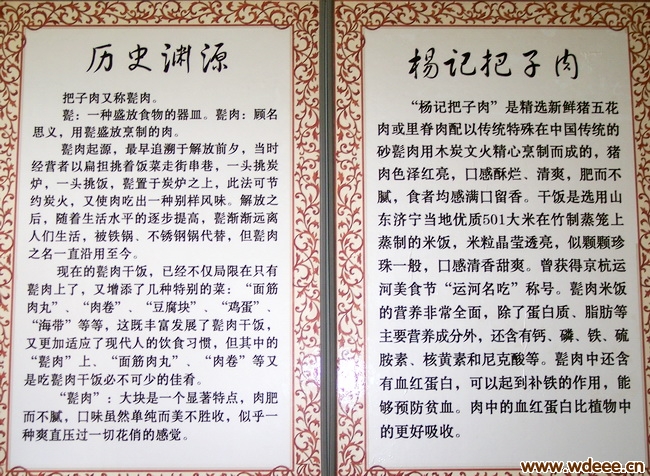 历史渊源
把子肉又称甏肉。
甏：一种盛放食物的器皿。甏肉：顾名
思义，用甏盛放烹制的肉。
甏肉起源，最早追溯于解放前夕，当时
经营者以扁担挑着饭菜走街串巷，一头挑炭
炉，一头挑饭，甏置于炭炉之上，此法可节
约炭火，又使肉吃出一种别样风味。解放之
后，随着生活水平的逐步提高，甏渐渐远离
人们生活，被铁锅、不锈钢锅代替，但甏肉
之名一直沿用至今。
现在的甏肉干饭，已经不仅局限在只有
甏肉上了，又增添了几种特别的菜：“面筋
肉丸”、“肉卷”、“豆腐块”、“鸡蛋”、
“海带”等等，这既丰富发展了甏肉干饭，
又更加适应了现代人的饮食习惯，但其中的
“甏肉”上、“面筋肉丸”、“肉卷”等又
是吃甏肉干饭必不可少的佳肴。
“甏肉”：大块是一个显著特点，肉肥
而不腻，口味虽然单纯而美不胜收，似乎一
种爽直压过一切花俏的感觉。
杨记把子肉
“杨记把子肉”是精选新鲜猪五花
肉或里脊肉配以传统特殊在中国传统的
砂甏肉用木炭文火精心烹制而成的，猪
肉色泽红亮，口感酥烂、清爽，肥而不
腻，食者均感满口留香。干饭是选用山
东济宁当地优质501大米在竹制蒸笼上
蒸制的米饭，米粒晶莹透亮，似颗颗珍
珠一般，口感清香甜爽。曾获得京杭运
河美食节“运河名吃”称号。甏肉米饭
的营养非常全面，除了蛋白质、脂肪等
主要营养成分外，还含有钙、磷、铁、硫
胺素、核黄素和尼克酸等。甏肉中还含
有血红蛋白，可以起到补铁的作用，能
够预防贫血。肉中的血红蛋白比植物中
的更好吸收。
www.wdeee.cn